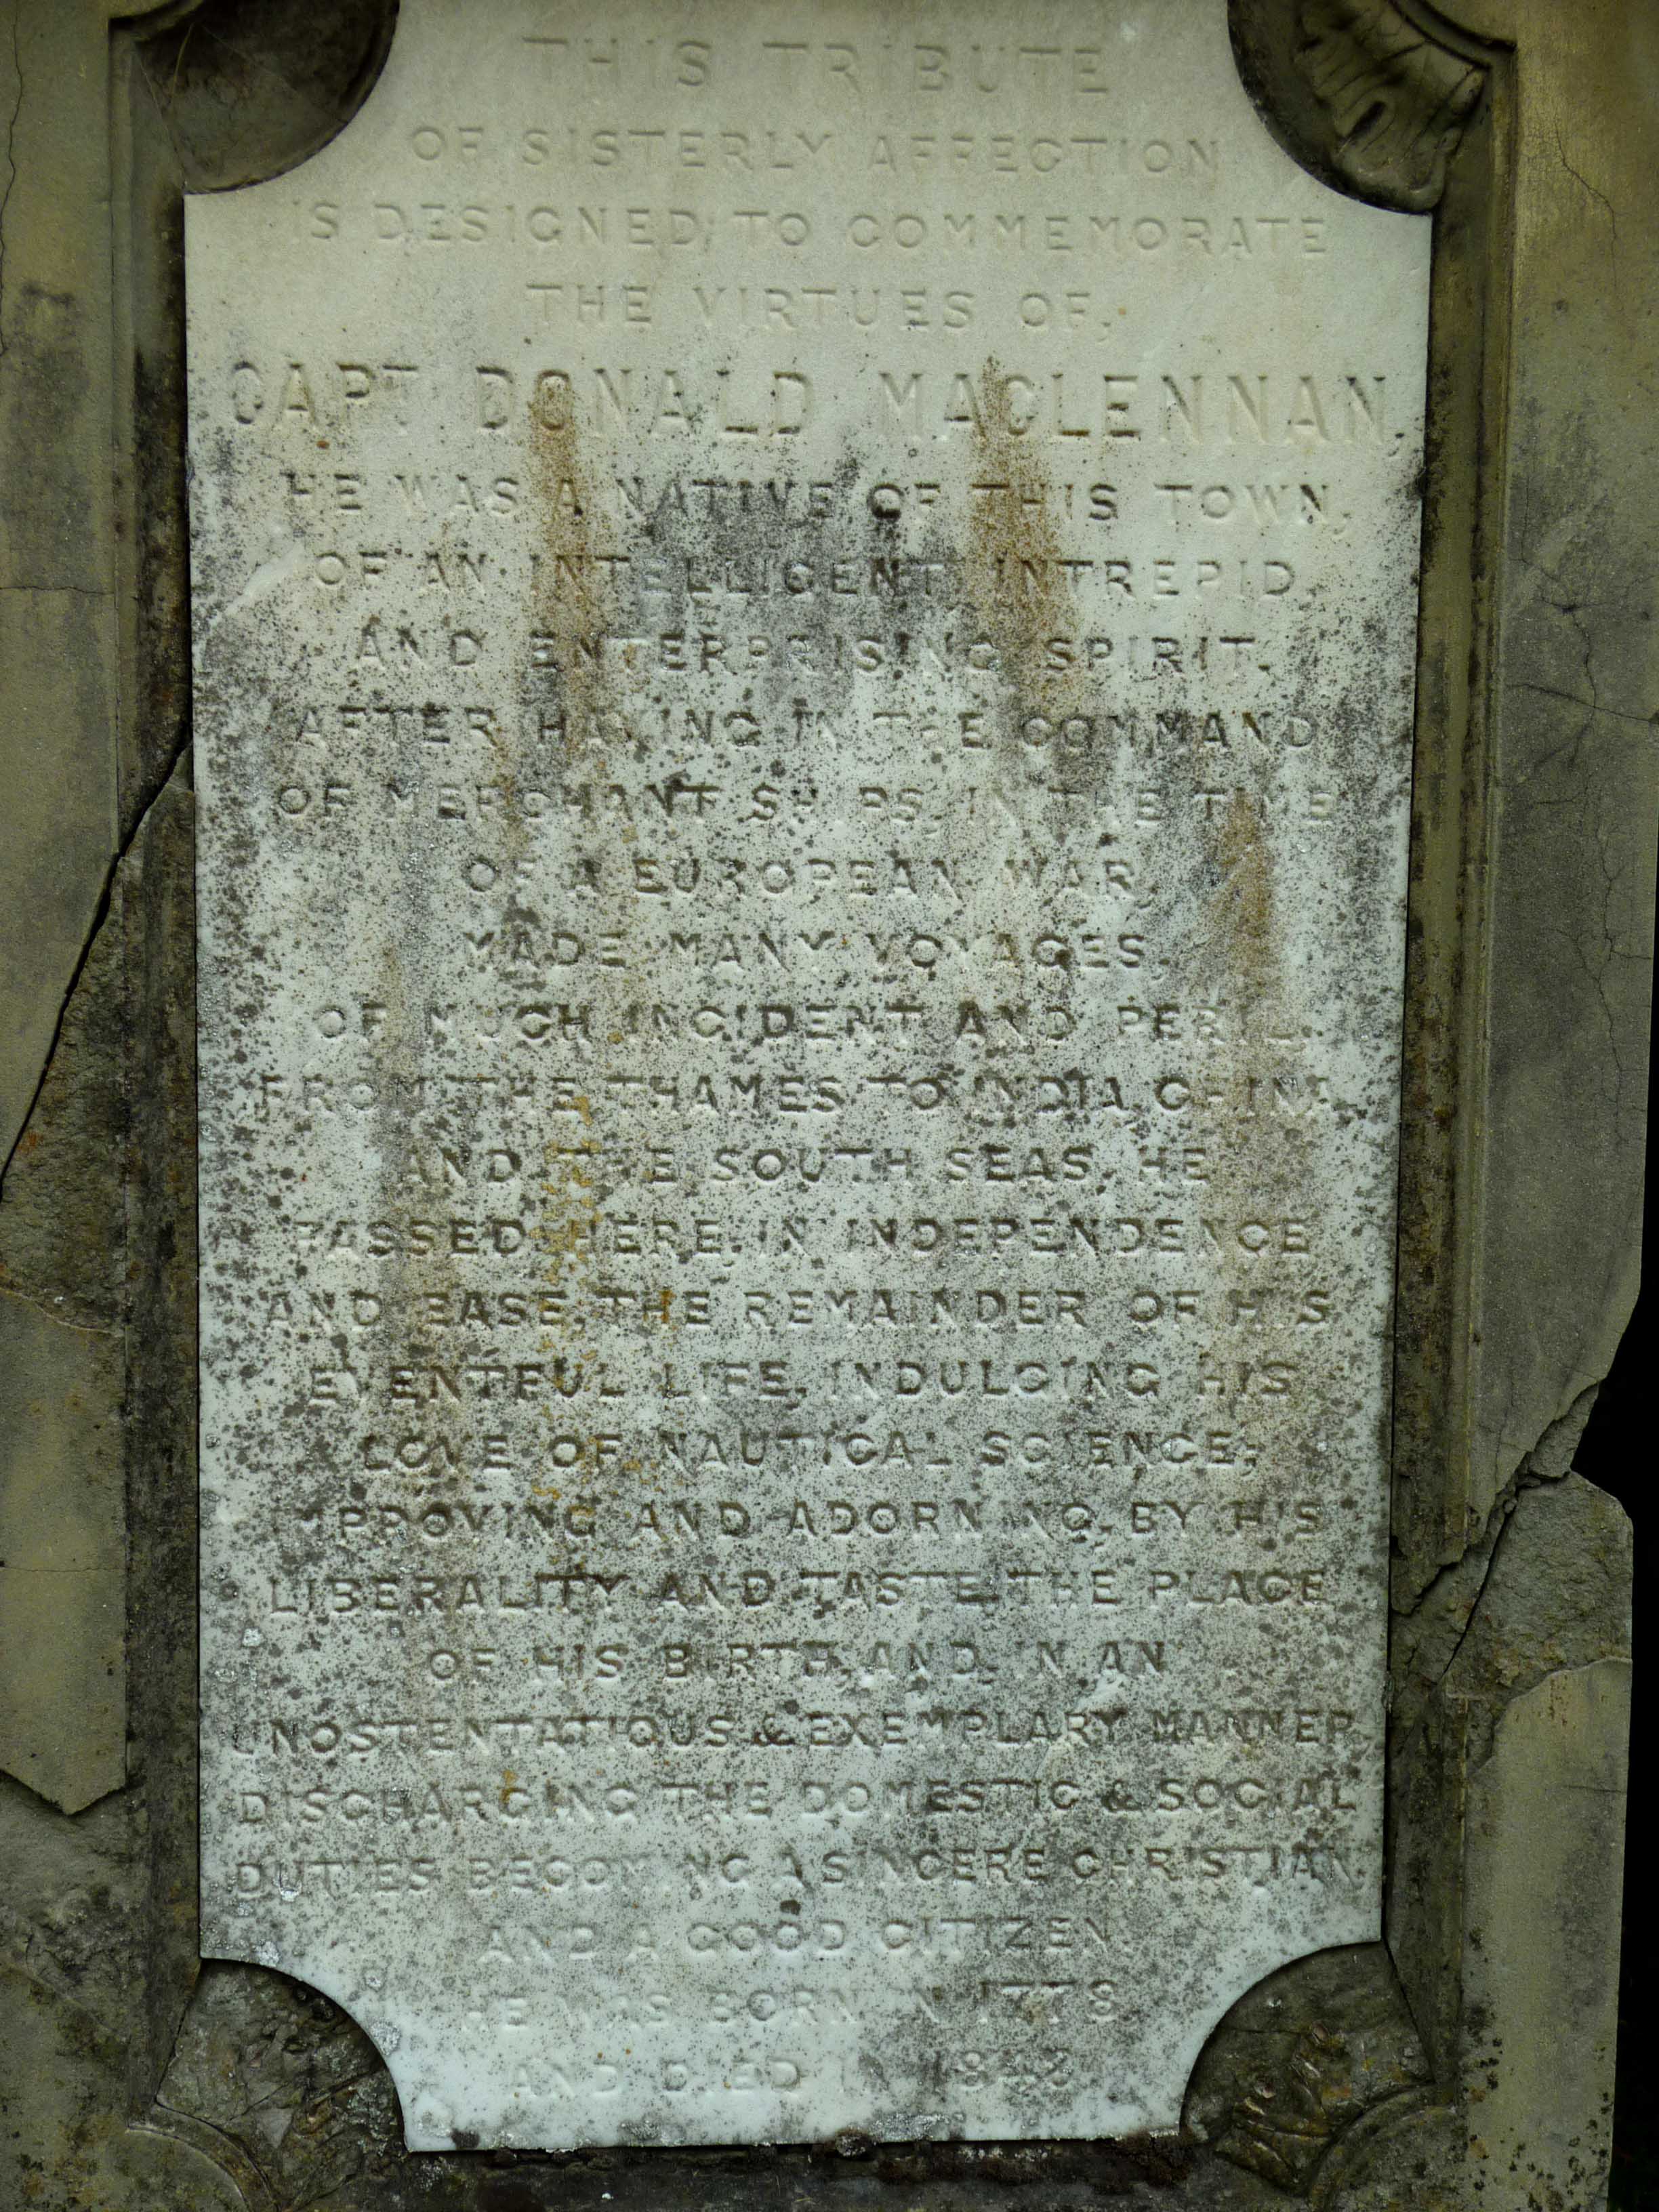 THIS TRIBUTE
OF SISTERLY AFFECTION
IS DESIGNED, TO COMMEMORATE
THE VIRTUES OF,
CAPT DONALD MACLENNAN,
HE WAS A NATIVE OF THIS TOWN,
OF AN INTELLIGENT, INTREPID,
AND ENTERPRISING SPIRIT.
AFTER HAVING IN THE COMMAND
OF MERCHANT SHIPS, IN THE TIME
OF A EUROPEAN WAR,
MADE MANY VOYAGES,
OF MUCH INCIDENT AND PERIL,
FROM THE THAMES TO INDIA, CHINA,
AND THE SOUTH SEAS, HE
PASSED HERE, IN INDEPENDENCE
AND EASE, THE REMAINDER OF HIS
EVENTFUL LIFE, INDULGING HIS
LOVE OF NAUTICAL SCIENCE;
IMPROVING AND ADORNING, BY HIS
LIBERALITY AND TASTE, THE PLACE
OF HIS BIRTH, AND, IN AN
UNOSTENTATIOUS & EXEMPLARY MANNER,
DISCHARGING THE DOMESTIC & SOCIAL
DUTIES BECOMING A SINCERE CHRISTIAN,
AND A GOOD CITIZEN.
HE WAS BORN IN 1778
AND DIED IN